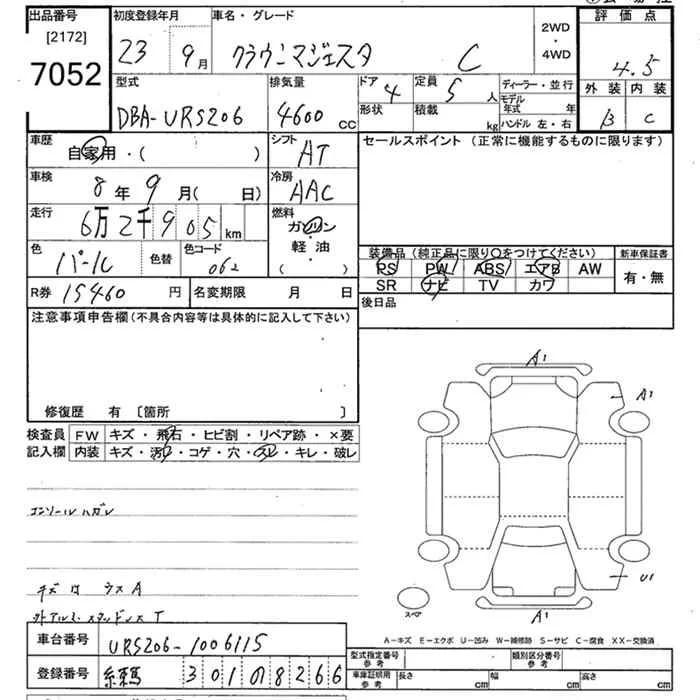 出品番号 初度登録年月 車名・グレード 2WD・4WD 評価点
[2172]
7052 23 9月 クラウンマジェスタ C 4.5
型式 排気量 ドア 4 定員 5人 ディーラー・並行 外装 内装
DBA-URS206 4600cc 形状 積載 kg モデル年式 年 ハンドル 左・右 B C
車歴 自家用・( ) シフト AT セールスポイント (正常に機能するものに限ります)
車検 8年9月( 日) 冷房 AAC
走行 6万2千905km 燃料 ガソリン・軽油・( )
色 パール 色替 色コード 062
装備品 (純正品に限り○をつけてください) 新車保証書
PS PW ABS エアB AW 有・無
SR ナビ TV カワ
R券 15460円 名変期限 月 日 後日品
注意事項申告欄 (不具合内容等は具体的に記入して下さい)
修復歴 有 [箇所 ]
検査員 FW キズ・飛石・ヒビ割・リペア跡・×要
記入欄 内装 キズ・汚れ・コゲ・穴・スレ・キレ・破レ
A1
A1
コンソールハガレ
U1
キズはウスA
スペア
A1
外アルミ・スタッドレスT
A-キズ E-エクボ U-凹み W-補修跡 S-サビ C-腐食 XX-交換済
車台番号 URS206-1006115
型式指定番号 参考 類別区分番号 参考
登録番号 群馬 301 8266
車庫証明用 参考 長さ cm 幅 cm 高さ cm